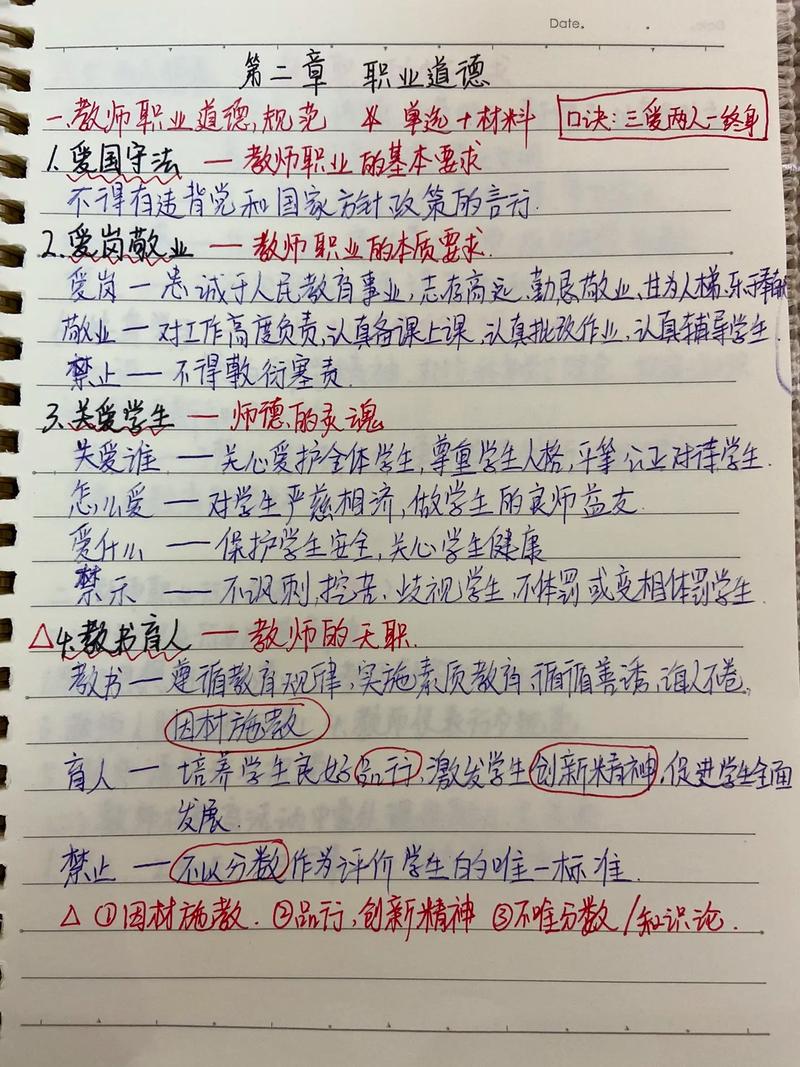 Date.
第二章 职业道德
一、教师职业道德规范 单选+材料 口诀:三爱两人一终身
1.爱国守法 — 教师职业的基本要求
不得有违背党和国家方针政策的言行.
2.爱岗敬业 — 教师职业的本质要求.
爱岗 — 忠诚于人民教育事业,志存高远,勤恳敬业,甘为人梯,乐于奉献
敬业 — 对工作高度负责,认真备课上课,认真批改作业,认真辅导学生.
禁止 — 不得敷衍塞责.
3.关爱学生 — 师德的灵魂
关爱谁 — 关心爱护全体学生,尊重学生人格,平等公正对待学生.
怎么爱 — 对学生严慈相济,做学生的良师益友.
爱什么 — 保护学生安全,关心学生健康
禁示 — 不讽刺,挖苦、歧视学生,不体罚或变相体罚学生.
△4.教书育人 — 教师的天职.
教书 — 遵循教育规律,实施素质教育,循循善诱,诲人不卷,
因材施教
育人 — 培养学生良好品行,激发学生创新精神,促进学生全面
发展.
禁止 — 不以分数作为评价学生的唯一标准.
△ ①因材施教. ②品行,创新精神 ③不唯分数/知识论.